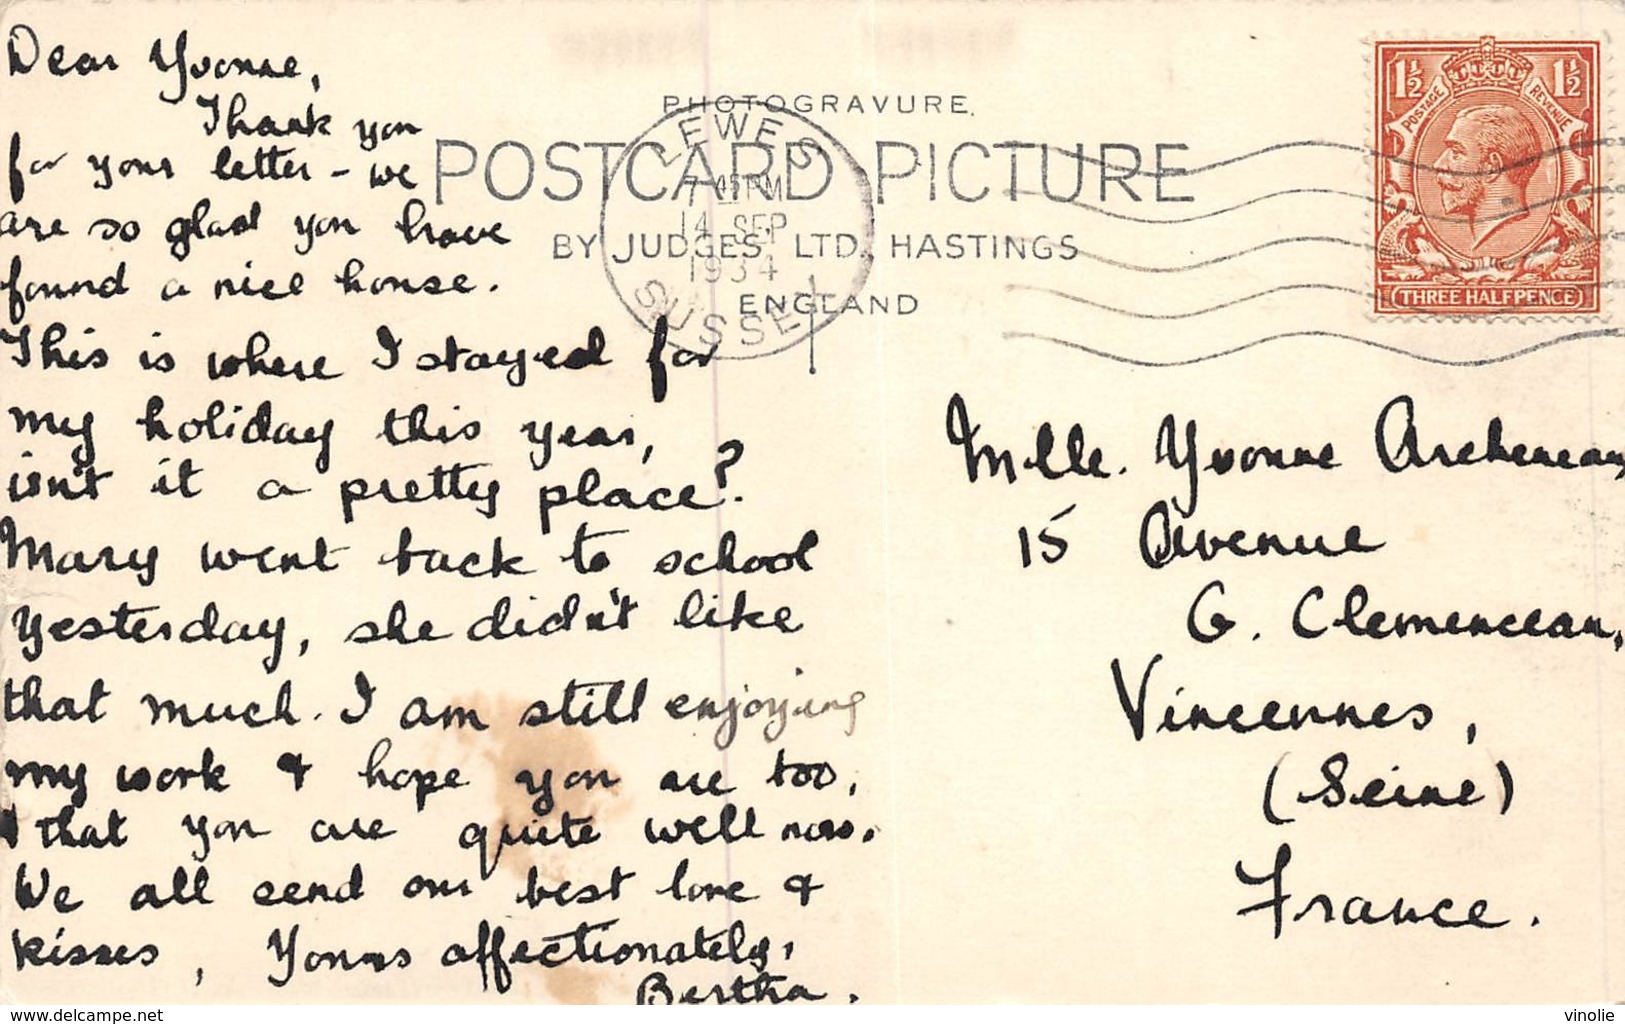 Dear Yvonne,
Thank you
for your letter - we
are so glad you have
found a nice house.
This is where I stayed for
my holiday this year,
isn't it a pretty place?
Mary went back to school
yesterday, she didn't like
that much. I am still enjoying
my work & hope you are too,
& that you are quite well now.
We all send our best love &
kisses, Yours affectionately,
Bertha.
PHOTOGRAVURE.
POSTCARD PICTURE
BY JUDGES LTD., HASTINGS
ENGLAND
LEWES
7 45 PM
14 SEP
1934
SUSSEX
1½ 1½
POSTAGE REVENUE
THREE HALFPENCE
Mlle. Yvonne
15 Avenue
G. Clemenceau,
Vincennes,
(Seine)
France.
www.delcampe.net
vinolie